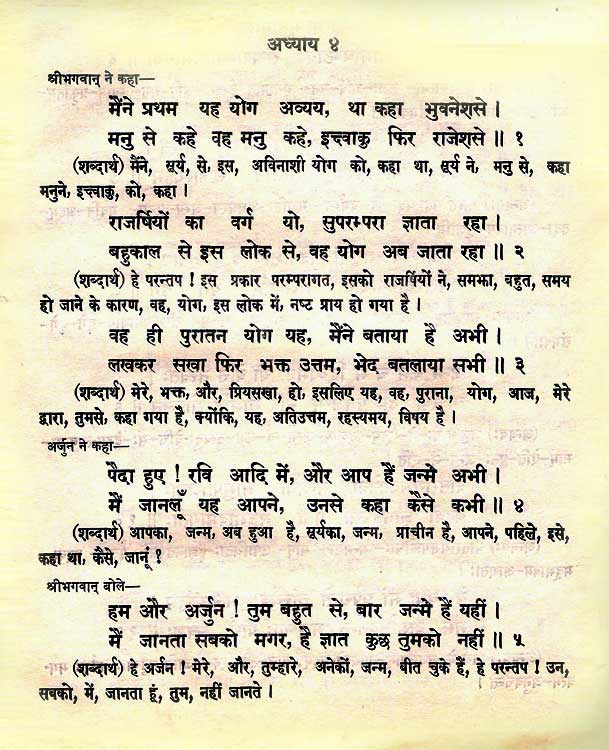 अध्याय ४
श्रीभगवान् ने कहा—
मैंने प्रथम यह योग अव्यय, था कहा भुवनेशसे ।
मनु से कहे वह मनु कहे, इक्ष्वाकु फिर राजेशसे ॥ १
(शब्दार्थ) मैंने, सूर्य, से, इस, अविनाशी योग को, कहा था, सूर्य ने, मनु से, कहा
मनुने, इक्ष्वाकु, को, कहा ।
राजर्षियों का वर्ग यो, सुपरम्परा ज्ञाता रहा ।
बहुकाल से इस लोक से, वह योग अब जाता रहा ॥ २
(शब्दार्थ) हे परन्तप ! इस प्रकार परम्परागत, इसको राजर्पियों ने, समझा, बहुत, समय
हो जाने के कारण, वह, योग, इस लोक में, नष्ट प्राय हो गया है ।
वह ही पुरातन योग यह, मैंने बताया है अभी ।
लखकर सखा फिर भक्त उत्तम, भेद बतलाया सभी ॥ ३
(शब्दार्थ) मेरे, भक्त, और, प्रियसखा, हो, इसलिए यह, वह, पुराना, योग, आज, मेरे
द्वारा, तुमसे, कहा गया है, क्योंकि, यह, अतिउत्तम, रहस्यमय, विषय है ।
अर्जुन ने कहा—
पैदा हुए ! रवि आदि में, और आप हैं जन्मे अभी ।
मैं जानलूँ यह आपने, उनसे कहा कैसे कभी ॥ ४
(शब्दार्थ) आपका, जन्म, अब हुआ है, सूर्यका, जन्म, प्राचीन है, आपने, पहिले, इसे,
कहा था, कैसे, जानूं !
श्रीभगवान् बोले—
हम और अर्जुन ! तुम बहुत से, बार जन्मे हैं यहीं ।
मैं जानता सबको मगर, है ज्ञात कुछ तुमको नहीं ॥ ५
(शब्दार्थ) हे अर्जन ! मेरे, और, तुम्हारे, अनेकों, जन्म, बीत चुके हैं, हे परन्तप ! उन,
सबको, में, जानता हूं, तुम, नहीं जानते ।